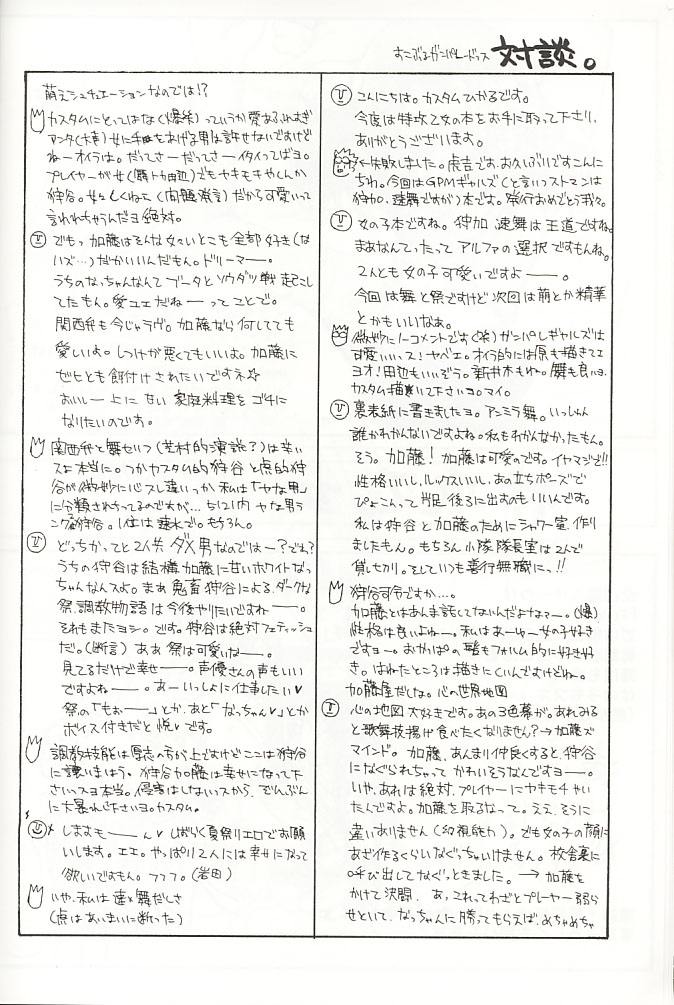 すこぶるガンパレードックス 対談。
こんにちは。カスタムひかるです。
今度は特攻乙女の本をお手に取って下さり、
ありがとうございます。
失敗しました。虎吉です。お久しぶりですこんに
ちわ。今回はGPMギャルズ(と言いつストマンは
狩加、速舞ですが)本です。発行おめでとう我々。
女の子本ですね。狩加 速舞は王道ですね。
まあなんてったって アルファの選択ですもんね。
2人とも女の子可愛いですよーー。
今回は舞と祭ですけど次回は萌とか精華
とかもいいなぁ。
微妙にノーコメントです(笑)ガンパレギャルズは
可愛いいっス!ヤベエ。オイラ的には原も描きてエ
ヨオ!田辺もいいぞう。新井木もね。髪も良いヨ。
カスタム描いて下さいヨ。マイ。
裏表紙に書きましたヨ。アンミラ舞。いっしゅん
誰かわかんないですよね。私もわかんなかったもん。
そう。加藤!加藤は可愛のです。イヤマジで!!
性格いいし、ルックスいいし、あの立ちポーズで
ぴょこんって片足後ろに出すのもいいんです。
私は狩谷と加藤のためにシャワー室作り
ましたもん。もちろん小隊隊長室は2人で
貸し切り。そしていつも善行無職にっ!!
狩谷司令ですか…。
加藤とはあんま話してないんだよなァー。(爆)
性格は良いよねー。私はあーゆー女の子好き
ですヨー。おかっぱの髪もフォルム的に好き好
き。はねたところは描きにくいんですけどね。
加藤屋だしな。心の世界地図
心の地図大好きです。あの3色幕が。あれみる
と歌舞伎揚げ食べたくなりません?→加藤ズ
マインド。 加藤、あんまり仲良くすると、狩谷
になぐられちゃって かわいそうなんですヨー。
いや、あれは絶対、プレイヤーにヤキモチやい
たんですよ。加藤を取るなって。ええ、そうに
違いありません(幻視能力)。でも女の子の顔に
あざ作るくらいなぐっちゃいけません。校舎裏に
呼び出してなぐっときました。→加藤を
かけて決闘。 あ、これってわざとプレーヤー弱ら
せといて、なっちゃんに勝ってもらえば、めちゃめちゃ
萌えシュチュエーションなのでは!?
カスタムにとってはなく(爆笑)っていうか愛あふれすぎ
アンタ(大事)女に手をあげる男は許せないですけど
ねーオイラは。だってさーだってさーイタイってばヨ。
プレイヤーが女でもヤキモキやくんか
狩谷。女々しくねェ(問題発言)だから可愛いって
言われちゃうんだヨ絶対。
でもっ加藤はそんな女々しいとこも全部好き(な
ハズ…)だからいいんだもん。ドリーマー。
うちのなっちゃんなんてブータとソウダツ戦起こし
てたもん。愛ユエだねーーってことで。
関西弁も今じゃラヴ。加藤なら何してても
愛しいよ。しつけが悪くてもいいよ。加藤に
ゼヒとも餌付けされたいですネ☆
おいしー上に甘い家庭料理をゴチに
なりたいのです。
関西弁と舞せいつ(芝村的演説?)は辛い
スよ本当に。つかカスタム的狩谷と虎的狩
谷が微妙に心スレ違いっか私は「ヤな男」
に分類されちってるのですが…ちなみに内ヤな男ラ
ンク高狩谷。1位は速水で。もちろん。
どっちかってと2人共、ダメ男なのではー?でれ?
うちの狩谷は結構加藤に甘いホワイトなっ
ちゃんなんスよ。まあ鬼畜狩谷による、ダークな
祭、調教物語は今後やりたいですねーー。
それもまたヨシ。です。狩谷は絶対フェティッシュ
だ。(断言)ああ祭は可愛いねー。
見てるだけで幸せーー。声優さんの声もいい
ですよねーー。あーいっしょに仕事したい♥
祭の「もぉーー」とか、あと「なっちゃん♥」とか
ボイス付きだと悦♥です。
調教技能は厚志の方が上ですけどここは狩谷
に譲りましょう。狩谷加藤は幸せになって下
さいっスヨ本当。侵害はしないっスから、ぞんぶん
に大暴れ下さいヨ。カスタム。
しますもーーん♥しばらく夏祭りエロでお願
いします。エエ。やっぱり2人には幸せになって
欲しいですもん。フフフ。(岩田)
いや、私は速×舞だしさ
(虎はあいまいに断った)